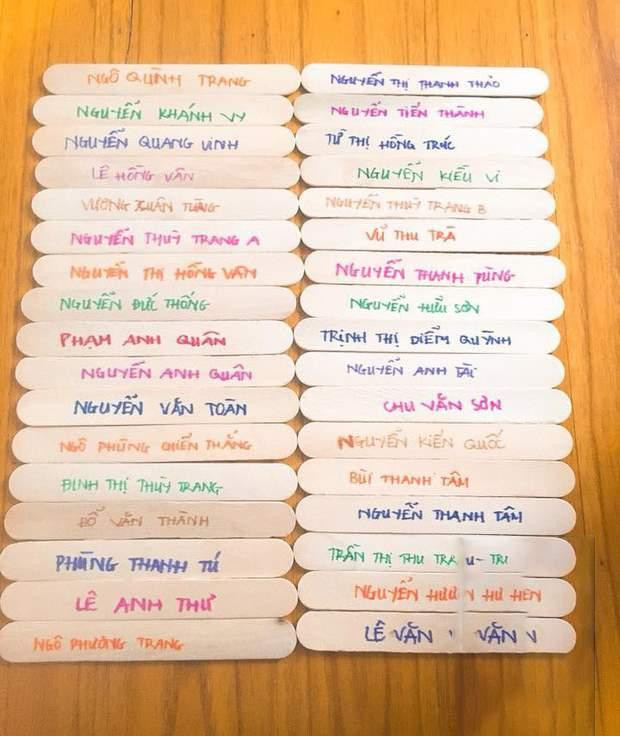 NGÔ QUỲNH TRANG
NGUYỄN KHÁNH VY
NGUYỄN QUANG VINH
LÊ HỒNG VÂN
VƯƠNG XUÂN TÙNG
NGUYỄN THUỲ TRANG A
NGUYỄN THỊ HỒNG VÂN
NGUYỄN ĐỨC THỐNG
PHẠM ANH QUÂN
NGUYỄN ANH QUÂN
NGUYỄN VĂN TOÀN
NGÔ PHÙNG CHIẾN THẮNG
ĐINH THỊ THUỲ TRANG
ĐỖ VĂN THÀNH
PHÙNG THANH TÚ
LÊ ANH THƯ
NGÔ PHƯƠNG TRANG
NGUYỄN THỊ THANH THẢO
NGUYỄN TIẾN THÀNH
TỪ THỊ HỒNG TRÚC
NGUYỄN KIỀU VI
NGUYỄN THUỲ TRANG B
VŨ THU TRÀ
NGUYỄN THANH TÙNG
NGUYỄN HỮU SƠN
TRỊNH THỊ DIỄM QUỲNH
NGUYỄN ANH TÀI
CHU VĂN SƠN
NGUYỄN KIẾN QUỐC
BÙI THANH TÂM
NGUYỄN THANH TÂM
TRẦN THỊ THU
NGUYỄN
LÊ VĂN VĂN